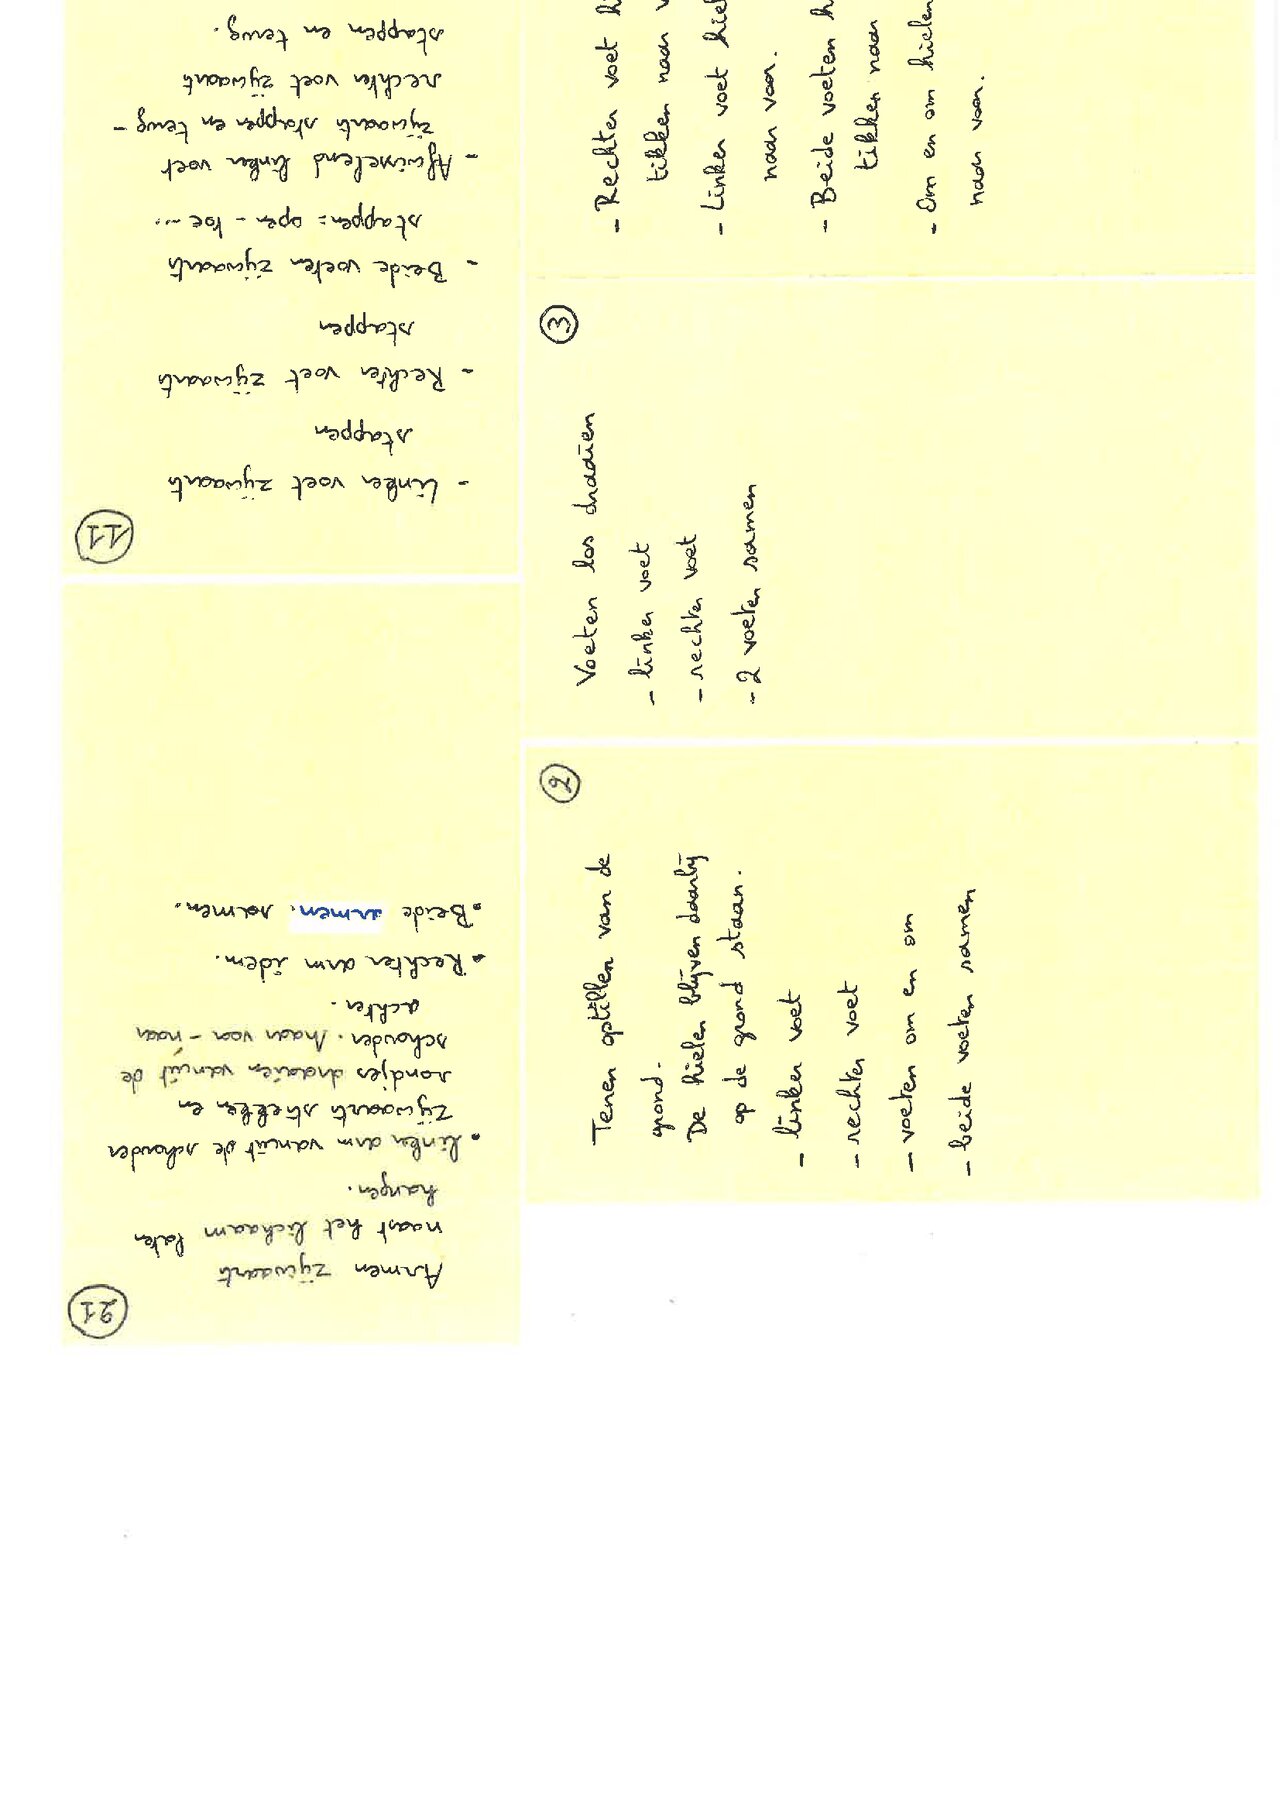 11
- Linker voet zijwaarts
stappen
- Rechter voet zijwaarts
stappen
- Beide voeten zijwaarts
stappen = open - toe ....
- Afwisselend linker voet
zijwaarts stappen en terug -
rechter voet zijwaarts
stappen en terug.
21
Armen zijwaarts
naast het lichaam laten
hangen.
• Linker arm vanuit de schouder
zijwaarts strekken en
rondjes draaien vanuit de
schouder. Naar voor - naar
achter.
• Rechter arm idem.
• Beide armen. samen.
- Rechter voet
tikken naar
- Linker voet
naar voor.
- Beide voeten
tikken naar
- Om en om hielen
naar voor.
3
Voeten los draaien
- linker voet
- rechter voet
- 2 voeten samen
2
Tenen optillen van de
grond.
De hielen blijven daarbij
op de grond staan.
- linker voet
- rechter voet
- voeten om en om
- beide voeten samen